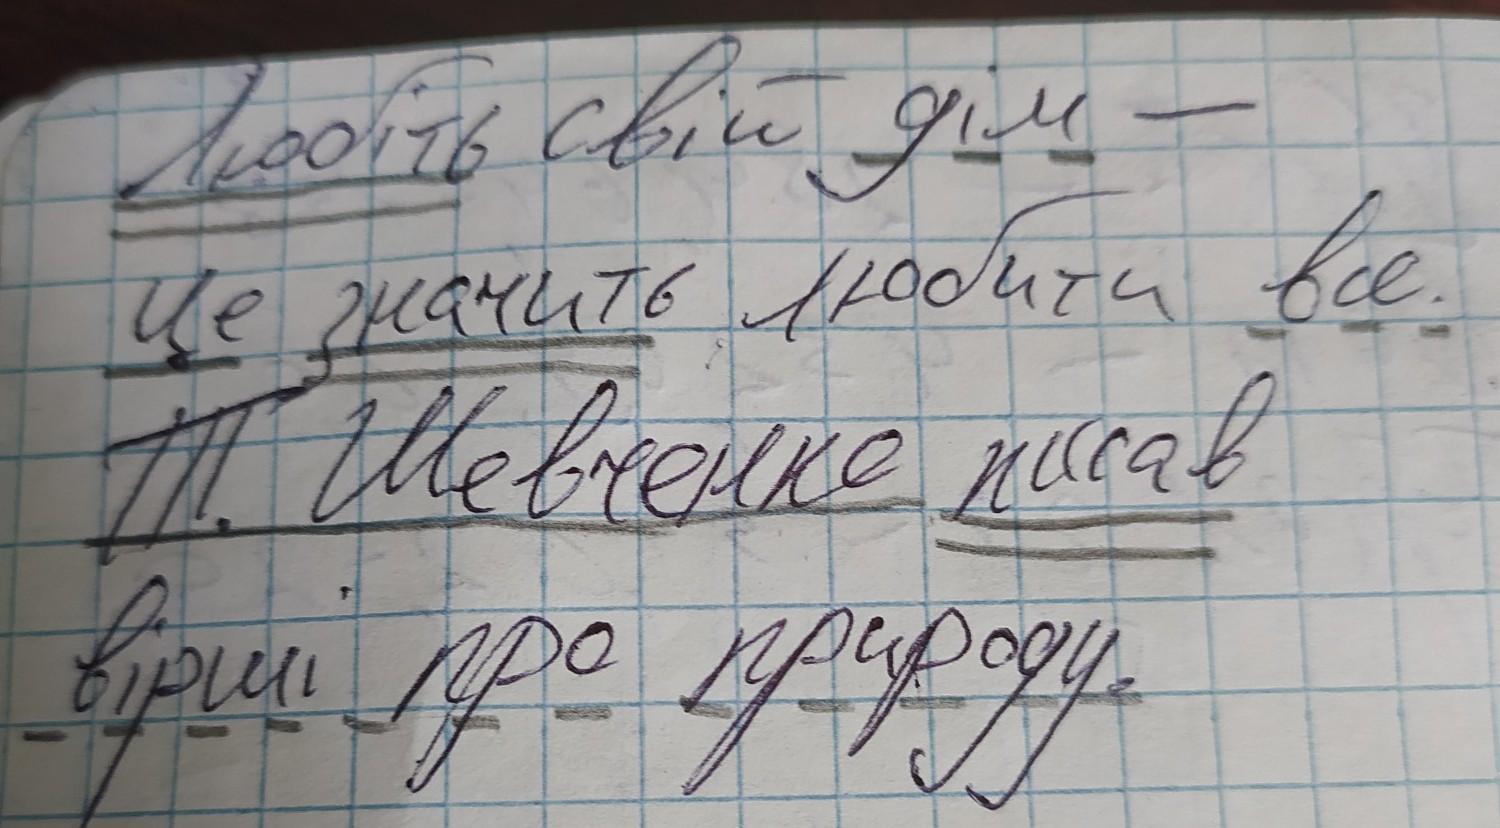 Любіть свій дім —
це значить любити все.
Т. Шевченко писав
вірші про природу.